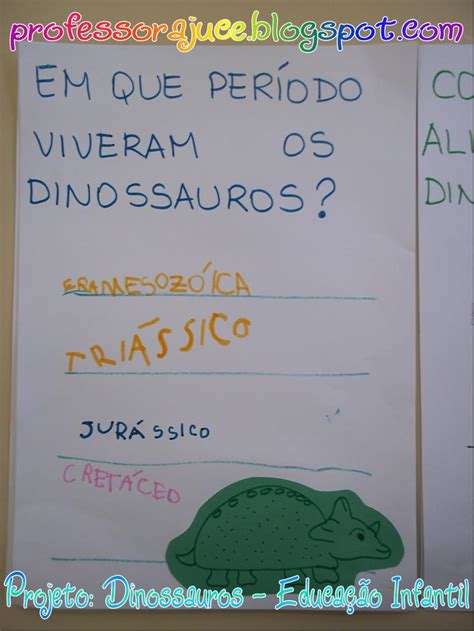 professorajuce.blogspot.com
EM QUE PERÍODO
VIVERAM OS
DINOSSAUROS?
ERAMESOZÓICA
TRIÁSSICO
JURÁSSICO
CRETÁCEO
CO
ALI
DIN
Projeto: Dinossauros - Educação Infantil